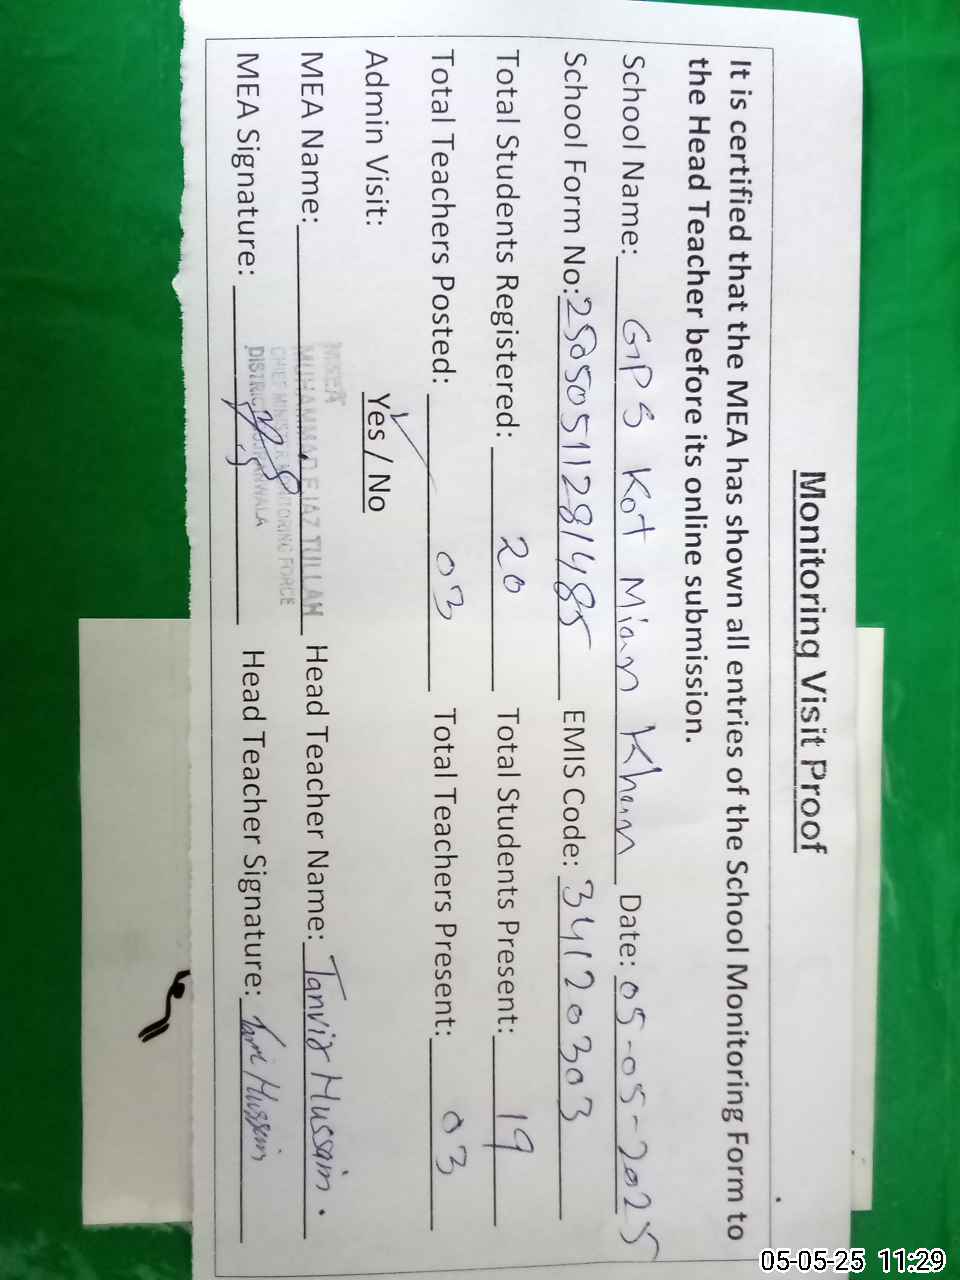 Monitoring Visit Proof
It is certified that the MEA has shown all entries of the School Monitoring Form to
the Head Teacher before its online submission.
School Name: GPS Kot Mian Khan Date: 05-05-2025
School Form No: 25050511281485 EMIS Code: 34120303
Total Students Registered: 20 Total Students Present: 19
Total Teachers Posted: 03 Total Teachers Present: 03
Admin Visit: Yes / No
MEA Name: MUHAMMAD EJAZ TULLAH Head Teacher Name: Tanvir Hussain.
CHIEF MINISTER MONITORING FORCE
MEA Signature: Head Teacher Signature: Tanvir Hussain
05-05-25 11:29